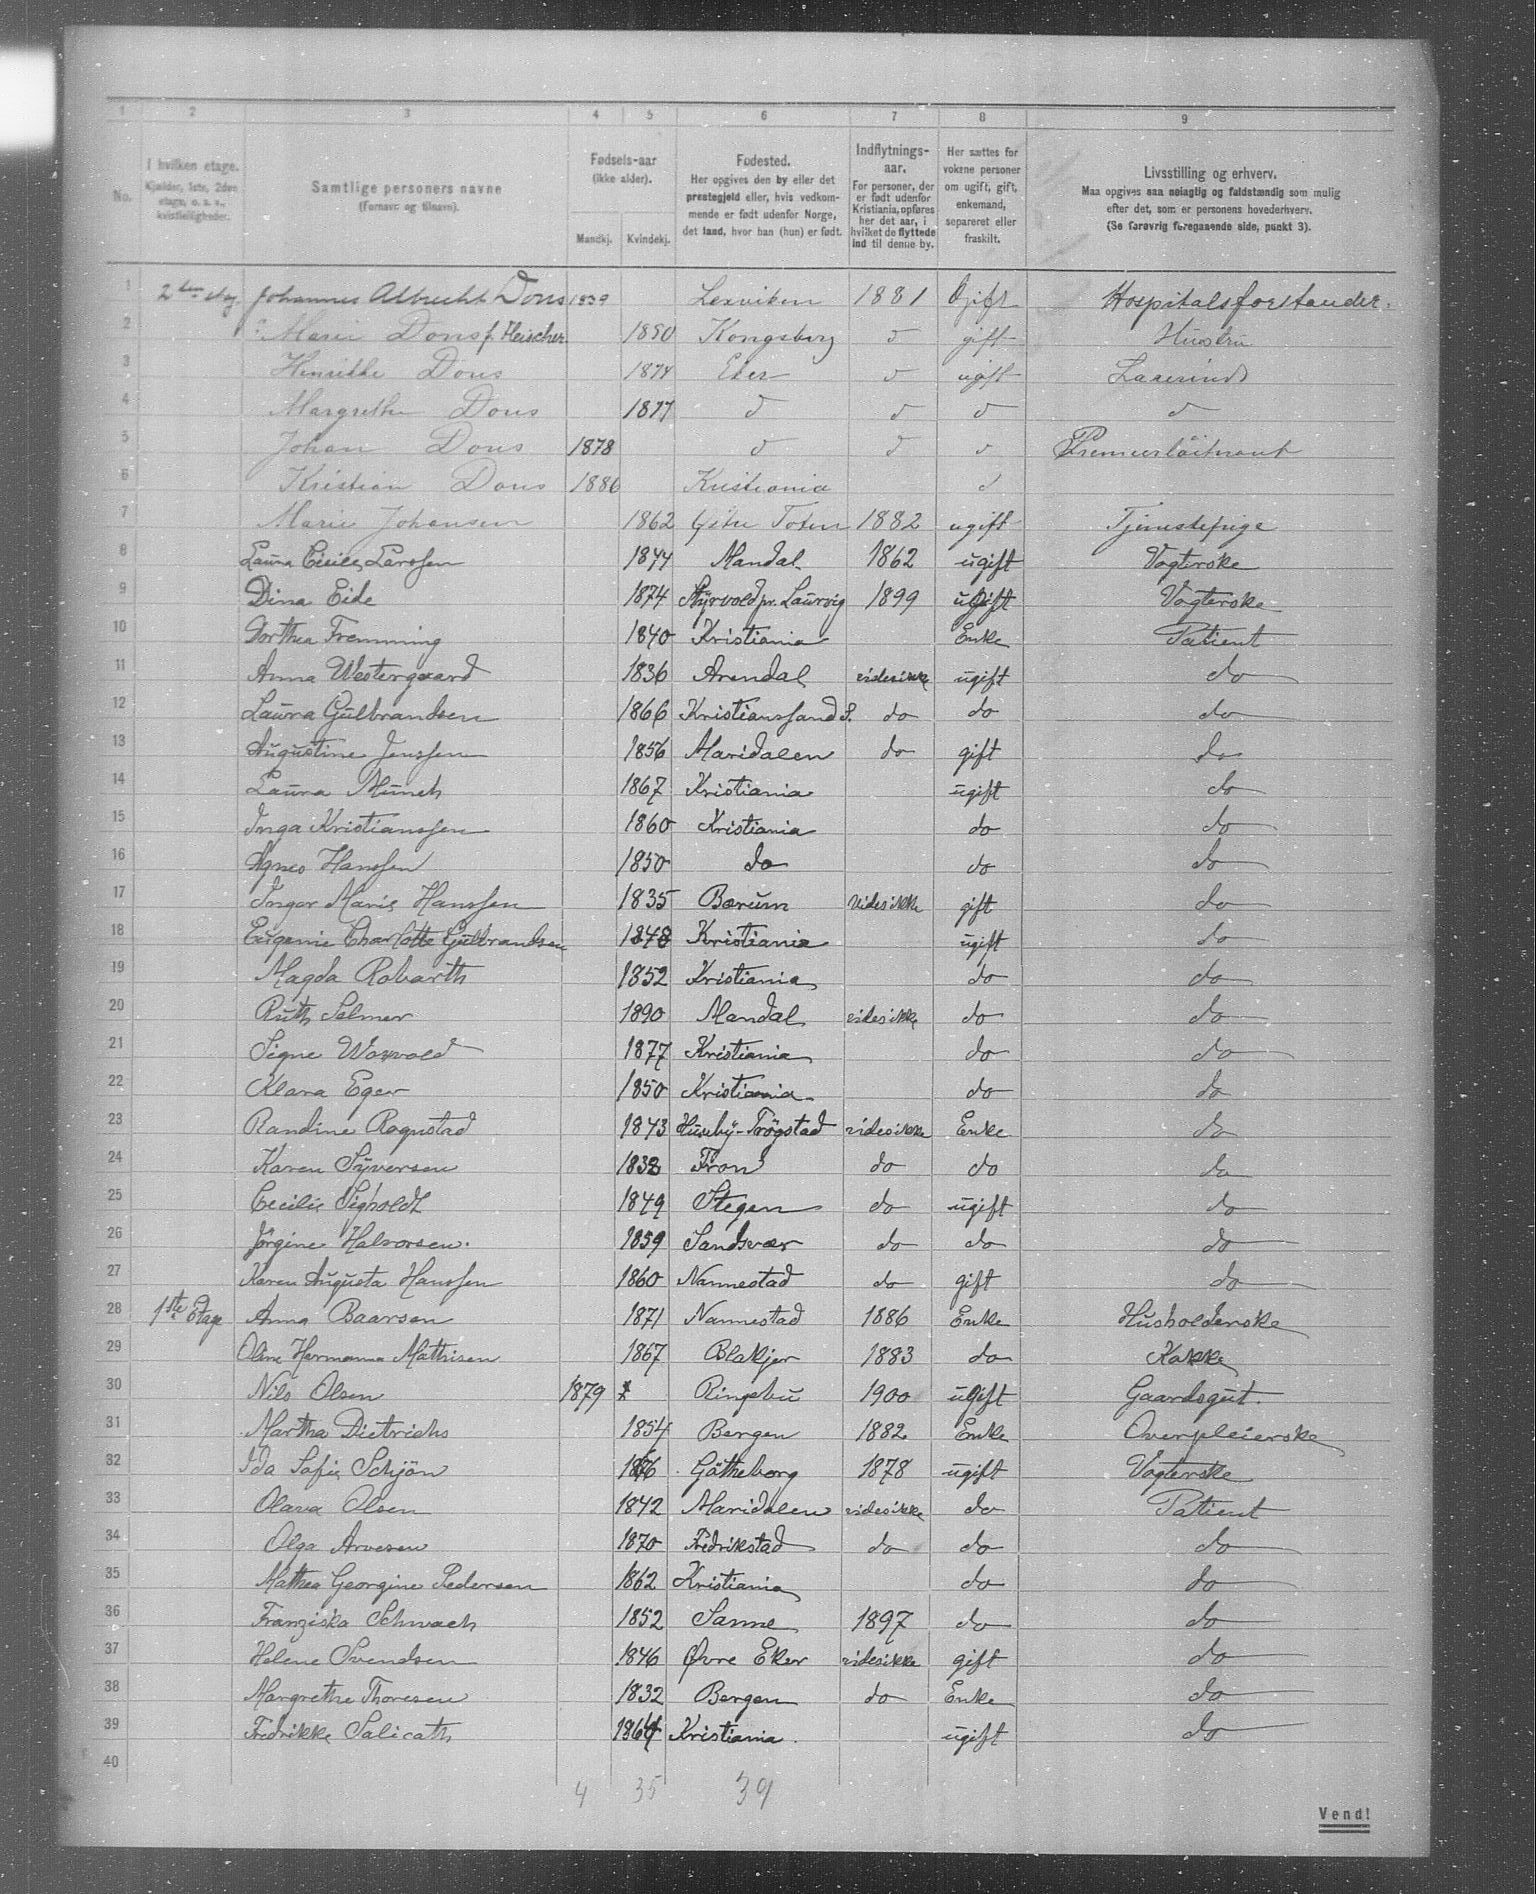 1 2 3 4 5 6 7 8 9
No. I hvilken etage. Kjælder, 1ste, 2den etage, o. s. v., kvistleiligheder. Samtlige personers navne (Fornavn og tilnavn). Fødsels-aar (ikke alder). Mandkj. Kvindekj. Fødested. Her opgives den by eller det prestegjeld eller, hvis vedkommende er født udenfor Norge, det land, hvor han (hun) er født. Indflytnings-aar. For personer, der er født udenfor Kristiania, opføres her det aar, i hvilket de flyttede ind til denne by. Her sættes for voksne personer om ugift, gift, enkemand, separeret eller fraskilt. Livsstilling og erhverv. Maa opgives saa nøiagtig og fuldstændig som mulig efter det, som er personens hovederhverv. (Se forøvrig foregaaende side, punkt 3).
1 2den etag. Johannes Albrecht Dons 1839 Lexviken 1881 Gift Hospitalsforstander.
2 Marie Dons f. Fleischer 1850 Kongsberg d gift Hustru
3 Henrikke Dons 1874 Eker d ugift Lærerinde
4 Margrethe Dons 1877 d d d d
5 Johan Dons 1878 d d d Premierløitnant
6 Kristian Dons 1886 Kristiania d
7 Marie Johansen 1862 Østre Toten 1882 ugift Tjenestepige
8 Laura Cicilie Larssen 1844 Mandal 1862 ugift Vogterske
9 Dina Eide 1874 Styrvold pr. Laurvig 1899 ugift Vogterske
10 Dorthea Fremming 1840 Kristiania Enke Patient
11 Anna Westergaard 1836 Arendal vides ikke ugift do
12 Laura Gulbrandsen 1866 Kristianssand S. do do do
13 Augustine Jenssen 1856 Maridalen do gift do
14 Laura Munch 1867 Kristiania ugift do
15 Inga Kristianssen 1860 Kristiania do do
16 Agnes Hanssen 1850 do do do
17 Inger Marie Hanssen 1835 Bærum vides ikke gift do
18 Eugenie Charlotte Gulbrandsen 1848 Kristiania ugift do
19 Magda Robarth 1852 Kristiania do do
20 Ruth Selmer 1890 Mandal vides ikke do do
21 Signe Woxvold 1877 Kristiania do do
22 Klara Eger 1850 Kristiania do do
23 Randine Rognstad 1843 Huseby-Trøgstad vides ikke Enke do
24 Karen Syversen 1832 Fron do do do
25 Cecilie Sigholdt 1849 Stegen do ugift do
26 Jørgine Halvorsen. 1859 Sandsvær do do do
27 Karen Augusta Hanssen 1860 Nannestad do gift do
28 1ste Etage Anna Baarsen 1871 Nannestad 1886 Enke Husholderske
29 Oline Hermanna Mathisen 1867 Blakjer 1883 do Kokke
30 Nils Olsen 1879 Ringebu 1900 ugift Gaardsgut.
31 Martha Dietrichs 1854 Bergen 1882 Enke Overpleierske
32 Ida Sofie Schjøn Gøtheborg 1878 ugift Vogterske
33 Olava Olsen 1842 Maridalen vides ikke do Patient
34 Olga Arvesen 1870 Fredrikstad do do do
35 Mathea Georgine Pedersen 1862 Kristiania do do
36 Franziska Schwach 1852 Sanne 1897 do do
37 Helene Svendsen 1846 Øvre Eker vides ikke gift do
38 Margrethe Thoresen 1832 Bergen do Enke do
39 Fredrikke Salicath 1864 Kristiania. ugift do
40
4 35 39
Vend!